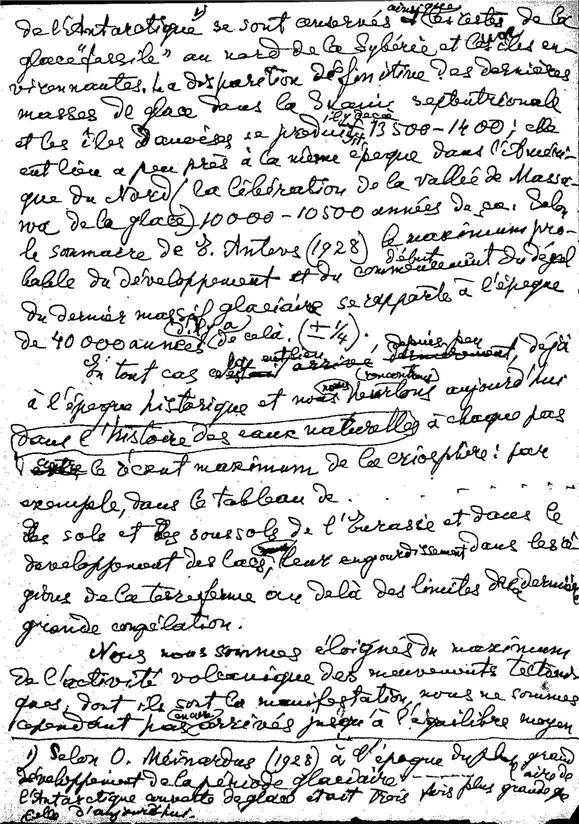 ainsi que
de l'Antarctique 1) se sont conservés et les restes de la
glace "fossile" au nord de la Sybérie et les îles en-
vironnantes. La disparition définitive des dernières
masses de glace dans la septentrionale
il y a
et les îles se produit 13500-1400; elle
eut lieu a peu près à la même époque dans l'Améri-
que du Nord (la libération de la vallée de Massa-
wa de la glace) 10000-10500 années de ça. Selon
le sommaire de E. Antevs (1928) le maximum pro-
début
bable du développement et du commencement du dégel
du dernier massif glaciaire se rapporte à l'époque
(il y a)
de 40 000 années (de celà. (± 1/4).
eut lieu depuis peu
En tout cas arrivé, déjà
nous rencontrons
à l'époque historique et nous heurtons aujourd'hui
dans l'histoire des eaux naturelles à chaque pas
le récent maximum de la criosphère: par
exemple, dans le tableau de . . . . . .
des sols et des soussols de l'Eurasie et dans le
développement des lacs, leur engourdissement dans les ré-
gions de la terre ferme au delà des limites de la dernière
grande congélation.
Nous nous sommes éloignés du maximum
de l'activité volcanique des mouvements tectoni-
ques, dont ils sont la manifestation, nous ne sommes
encore
cependant pas arrivés jusqu'à l'équilibre moyen
1) Selon O. Meinardus (1928) à l'époque du plus grand
développement de la période glaciaire l'aire de
l'Antarctique couverte de glace était trois fois plus grande que
celle d'aujourdhui.